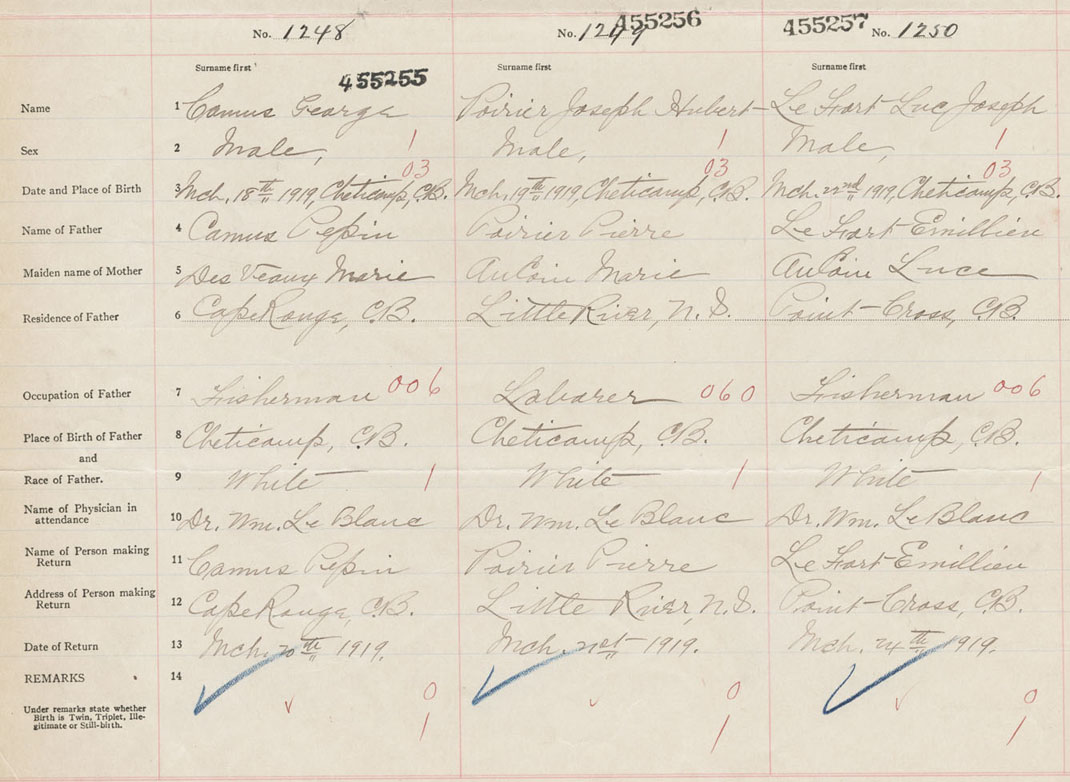 No. 1248 No. 1249 455256 455257 No. 1250
Surname first Surname first Surname first
455255
Name 1 Camus George Poirier Joseph Hubert Le Fort Luc Joseph
Sex 2 Male, 1 Male, 1 Male, 1
03 03 03
Date and Place of Birth 3 Mch. 18th 1919, Cheticamp, C.B. Mch. 19th 1919, Cheticamp, C.B. Mch. 22nd 1919, Cheticamp, C.B.
Name of Father 4 Camus Pepin Poirier Pierre Le Fort Emillien
Maiden name of Mother 5 Des Veaux Marie AuCoin Marie AuCoin Luce
Residence of Father 6 Cape Rouge, C.B. Little River, N.S. Point-Cross, C.B.
Occupation of Father 7 Fisherman 006 Laborer 060 Fisherman 006
Place of Birth of Father 8 Cheticamp, C.B. Cheticamp, C.B. Cheticamp, C.B.
and
Race of Father. 9 White 1 White 1 White 1
Name of Physician in attendance 10 Dr. Wm. Le Blanc Dr. Wm. Le Blanc Dr. Wm. Le Blanc
Name of Person making Return 11 Camus Pepin Poirier Pierre Le Fort Emillien
Address of Person making Return 12 Cape Rouge, C.B. Little River, N.S. Point-Cross, C.B.
Date of Return 13 Mch. 20th 1919. Mch. 21st 1919. Mch. 24th 1919.
REMARKS 14
0 0 0
Under remarks state whether
Birth is Twin, Triplet, Ille-
gitimate or Still-birth.
1 1 1